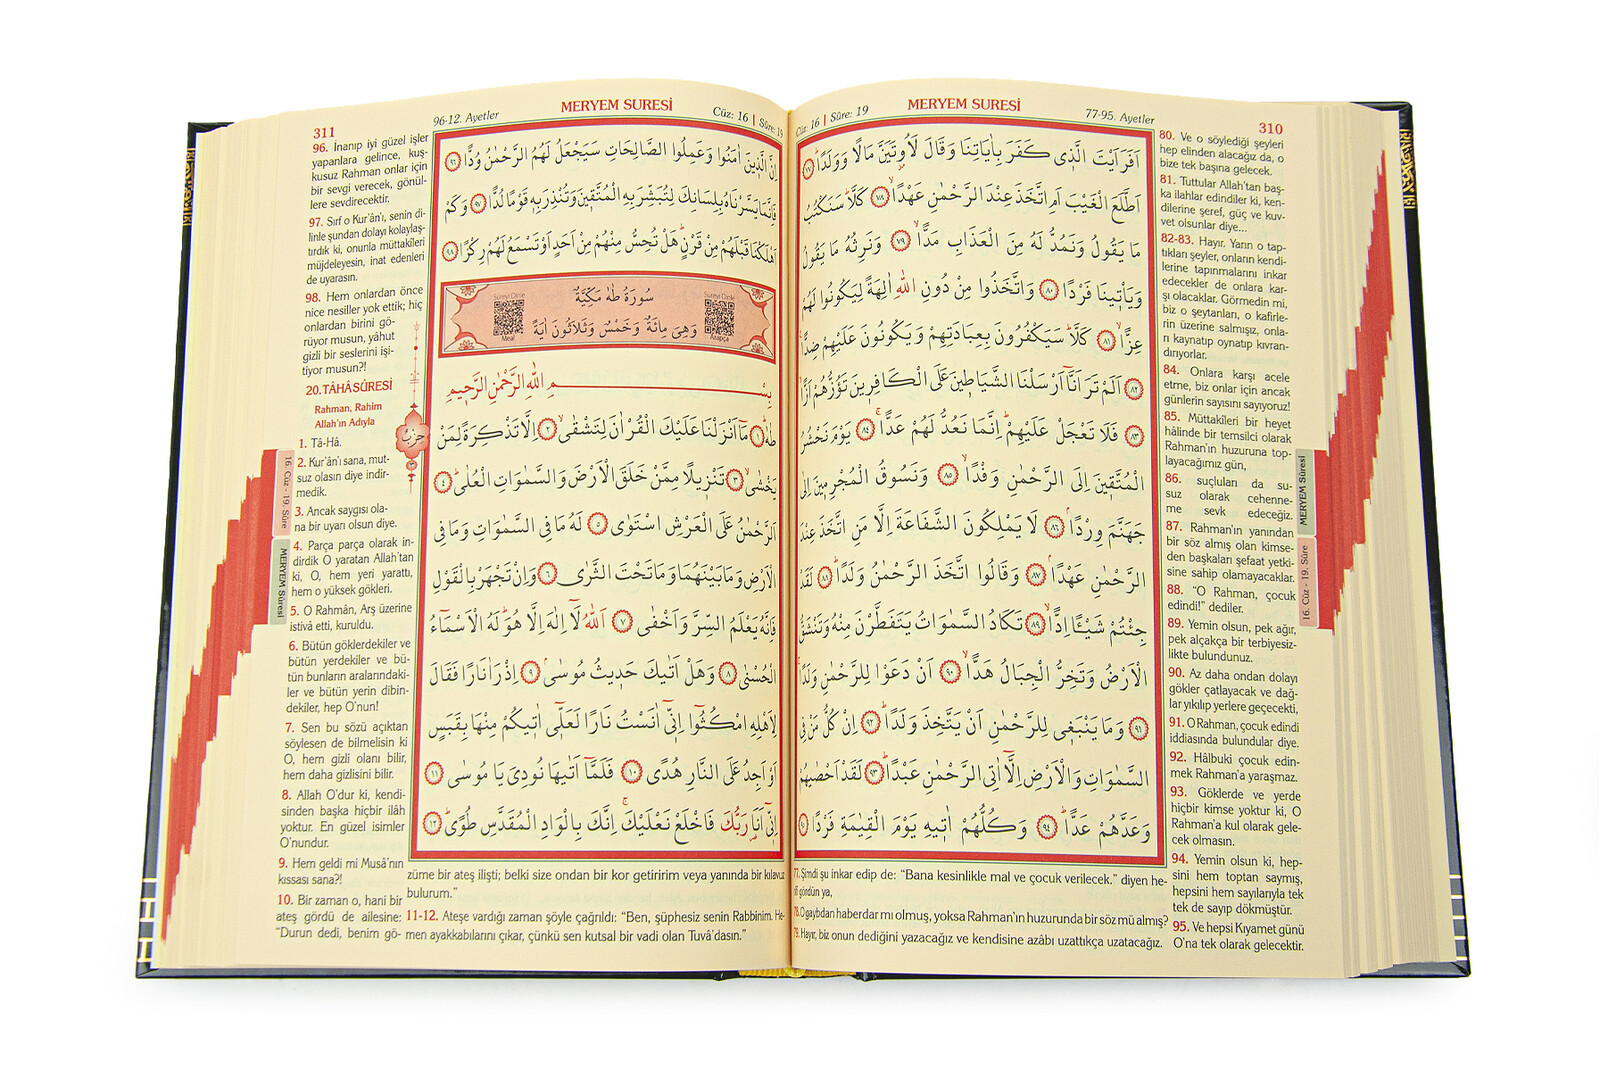 310
MERYEM SURESİ
Cüz: 16 | Sûre: 19
77-95. Ayetler
اَفَرَاَيْتَ الَّذ۪ي كَفَرَ بِاٰيَاتِنَا وَقَالَ لَاُو۫تَيَنَّ مَالًا وَوَلَدًاۜ ﴿٧٧﴾
اَطَّلَعَ الْغَيْبَ اَمِ اتَّخَذَ عِنْدَ الرَّحْمٰنِ عَهْدًاۙ ﴿٧٨﴾ كَلَّاۜ سَنَكْتُبُ
مَا يَقُولُ وَنَمُدُّ لَهُ مِنَ الْعَذَابِ مَدًّاۙ ﴿٧٩﴾ وَنَرِثُهُ مَا يَقُولُ
وَيَأْت۪ينَا فَرْدًا ﴿٨٠﴾ وَاتَّخَذُوا مِنْ دُونِ اللّٰهِ اٰلِهَةً لِيَكُونُوا لَهُمْ
عِزًّاۙ ﴿٨١﴾ كَلَّاۜ سَيَكْفُرُونَ بِعِبَادَتِهِمْ وَيَكُونُونَ عَلَيْهِمْ ضِدًّا
﴿٨٢﴾ اَلَمْ تَرَ اَنَّٓا اَرْسَلْنَا الشَّيَاط۪ينَ عَلَى الْكَافِر۪ينَ تَؤُزُّهُمْ اَزًّاۙ
﴿٨٣﴾ فَلَا تَعْجَلْ عَلَيْهِمْۜ اِنَّمَا نَعُدُّ لَهُمْ عَدًّاۚ ﴿٨٤﴾ يَوْمَ نَحْشُرُ
الْمُتَّق۪ينَ اِلَى الرَّحْمٰنِ وَفْدًاۙ ﴿٨٥﴾ وَنَسُوقُ الْمُجْرِم۪ينَ اِلٰى
جَهَنَّمَ وِرْدًاۢ ﴿٨٦﴾ لَا يَمْلِكُونَ الشَّفَاعَةَ اِلَّا مَنِ اتَّخَذَ عِنْدَ
الرَّحْمٰنِ عَهْدًاۢ ﴿٨٧﴾ وَقَالُوا اتَّخَذَ الرَّحْمٰنُ وَلَدًاۜ ﴿٨٨﴾ لَقَدْ
جِئْتُمْ شَيْـًٔا اِدًّاۙ ﴿٨٩﴾ تَكَادُ السَّمٰوَاتُ يَتَفَطَّرْنَ مِنْهُ وَتَنْشَقُّ
الْاَرْضُ وَتَخِرُّ الْجِبَالُ هَدًّاۙ ﴿٩٠﴾ اَنْ دَعَوْا لِلرَّحْمٰنِ وَلَدًاۚ
﴿٩١﴾ وَمَا يَنْبَغ۪ي لِلرَّحْمٰنِ اَنْ يَتَّخِذَ وَلَدًاۜ ﴿٩٢﴾ اِنْ كُلُّ مَنْ فِي
السَّمٰوَاتِ وَالْاَرْضِ اِلَّٓا اٰتِي الرَّحْمٰنِ عَبْدًاۜ ﴿٩٣﴾ لَقَدْ اَحْصٰيهُمْ
وَعَدَّهُمْ عَدًّاۜ ﴿٩٤﴾ وَكُلُّهُمْ اٰت۪يهِ يَوْمَ الْقِيٰمَةِ فَرْدًا ﴿٩٥﴾
77. Şimdi şu inkar edip de: “Bana kesinlikle mal ve çocuk verilecek.” diyen he-
gördün ya,
78. O gaybdan haberdar mı olmuş, yoksa Rahman'ın huzurunda bir söz mü almış?
79. Hayır, biz onun dediğini yazacağız ve kendisine azâbı uzattıkça uzatacağız.
80. Ve o söylediği şeyleri
hep elinden alacağız da, o
bize tek başına gelecek.
81. Tuttular Allah'tan baş-
ka ilahlar edindiler ki, ken-
dilerine şeref, güç ve kuv-
vet olsunlar diye...
82-83. Hayır. Yarın o tap-
tıkları şeyler, onların kendi-
lerine tapınmalarını inkar
edecekler de onlara kar-
şı olacaklar. Görmedin mi,
biz o şeytanları, o kafirle-
rin üzerine salmışız, onla-
rı kaynatıp oynatıp kıvran-
dırıyorlar.
84. Onlara karşı acele
etme, biz onlar için ancak
günlerin sayısını sayıyoruz!
85. Müttakileri bir heyet
hâlinde bir temsilci olarak
Rahman'ın huzuruna top-
layacağımız gün,
86. suçluları da su-
suz olarak cehenne-
me sevk edeceğiz.
87. Rahman'ın yanından
bir söz almış olan kimse-
den başkaları şefaat yetki-
sine sahip olamayacaklar.
88. “O Rahman, çocuk
edindi!” dediler.
89. Yemin olsun, pek ağır,
pek alçakça bir terbiyesiz-
likte bulundunuz.
90. Az daha ondan dolayı
gökler çatlayacak ve dağ-
lar yıkılıp yerlere geçecekti,
91. O Rahman, çocuk edindi
iddiasında bulundular diye.
92. Hâlbuki çocuk edin-
mek Rahman'a yaraşmaz.
93. Göklerde ve yerde
hiçbir kimse yoktur ki, O
Rahman'a kul olarak gele-
cek olmasın.
94. Yemin olsun ki, hep-
sini hem toptan saymış,
hepsini hem sayılarıyla tek
tek de sayıp dökmüştür.
95. Ve hepsi Kıyamet günü
O'na tek olarak gelecektir.
MERYEM Sûresi
16. Cüz - 19. Sûre
311
96-12. Ayetler
MERYEM SURESİ
Cüz: 16 | Sûre: 19
اِنَّ الَّذ۪ينَ اٰمَنُوا وَعَمِلُوا الصَّالِحَاتِ سَيَجْعَلُ لَهُمُ الرَّحْمٰنُ وُدًّا ﴿٩٦﴾
فَاِنَّمَا يَسَّرْنَاهُ بِلِسَانِكَ لِتُبَشِّرَ بِهِ الْمُتَّق۪ينَ وَتُنْذِرَ بِه۪ قَوْمًا لُدًّا ﴿٩٧﴾ وَكَمْ
اَهْلَكْنَا قَبْلَهُمْ مِنْ قَرْنٍۜ هَلْ تُحِسُّ مِنْهُمْ مِنْ اَحَدٍ اَوْ تَسْمَعُ لَهُمْ رِكْزًا ﴿٩٨﴾
سُورَةُ طٰهٰ مَكِّيَّةٌ
وَهِيَ مِائَةٌ وَخَمْسٌ وَثَلَاثُونَ اٰيَةً
Sureyi Dinle
Meal
Sureyi Dinle
Arapça
بِسْمِ اللّٰهِ الرَّحْمٰنِ الرَّح۪يمِ
طٰهٰۜ ﴿١﴾ مَٓا اَنْزَلْنَا عَلَيْكَ الْقُرْاٰنَ لِتَشْقٰىۙ ﴿٢﴾ اِلَّا تَذْكِرَةً لِمَنْ
يَخْشٰىۙ ﴿٣﴾ تَنْز۪يلًا مِمَّنْ خَلَقَ الْاَرْضَ وَالسَّمٰوَاتِ الْعُلٰىۜ ﴿٤﴾
اَلرَّحْمٰنُ عَلَى الْعَرْشِ اسْتَوٰى ﴿٥﴾ لَهُ مَا فِي السَّمٰوَاتِ وَمَا فِي
الْاَرْضِ وَمَا بَيْنَهُمَا وَمَا تَحْتَ الثَّرٰى ﴿٦﴾ وَاِنْ تَجْهَرْ بِالْقَوْلِ
فَاِنَّهُ يَعْلَمُ السِّرَّ وَاَخْفٰى ﴿٧﴾ اَللّٰهُ لَٓا اِلٰهَ اِلَّا هُوَۜ لَهُ الْاَسْمَٓاءُ
الْحُسْنٰى ﴿٨﴾ وَهَلْ اَتٰيكَ حَد۪يثُ مُوسٰىۢ ﴿٩﴾ اِذْ رَاٰ نَارًا فَقَالَ
لِاَهْلِهِ امْكُثُٓوا اِنّ۪ٓي اٰنَسْتُ نَارًا لَعَلّ۪ٓي اٰت۪يكُمْ مِنْهَا بِقَبَسٍ
اَوْ اَجِدُ عَلَى النَّارِ هُدًى ﴿١٠﴾ فَلَمَّٓا اَتٰيهَا نُودِيَ يَا مُوسٰى ﴿١١﴾
اِنّ۪ٓي اَنَا۬ رَبُّكَ فَاخْلَعْ نَعْلَيْكَۚ اِنَّكَ بِالْوَادِ الْمُقَدَّسِ طُوًىۜ ﴿١٢﴾
96. İnanıp iyi güzel işler
yapanlara gelince, kuş-
kusuz Rahman onlar için
bir sevgi verecek, gönül-
lere sevdirecektir.
97. Sırf o Kur'ân'ı, senin di-
linle şundan dolayı kolaylaş-
tırdık ki, onunla müttakileri
müjdeleyesin, inat edenleri
de uyarasın.
98. Hem onlardan önce
nice nesiller yok ettik; hiç
onlardan birini gö-
rüyor musun, yâhut
gizli bir seslerini işi-
tiyor musun?!
20. TÂHÂ SÛRESİ
Rahman, Rahim
Allah'ın Adıyla
1. Tâ-Hâ.
2. Kur'ân'ı sana, mut-
suz olasın diye indir-
medik.
3. Ancak saygısı ola-
na bir uyarı olsun diye.
4. Parça parça olarak in-
dirdik O yaratan Allah'tan
ki, O, hem yeri yarattı,
hem o yüksek gökleri.
5. O Rahmân, Arş üzerine
istivâ etti, kuruldu.
6. Bütün göklerdekiler ve
bütün yerdekiler ve bü-
tün bunların aralarındaki-
ler ve bütün yerin dibin-
dekiler, hep O'nun!
7. Sen bu sözü açıktan
söylesen de bilmelisin ki
O, hem gizli olanı bilir,
hem daha gizlisini bilir.
8. Allah O'dur ki, kendi-
sinden başka hiçbir ilâh
yoktur. En güzel isimler
O'nundur.
9. Hem geldi mi Musâ'nın
kıssası sana?!
10. Bir zaman o, hani bir
ateş gördü de ailesine:
“Durun dedi, benim gö-
züme bir ateş ilişti; belki size ondan bir kor getiririm veya yanında bir kılavuz
bulurum.”
11-12. Ateşe vardığı zaman şöyle çağrıldı: “Ben, şüphesiz senin Rabbinim. He-
men ayakkabılarını çıkar, çünkü sen kutsal bir vadi olan Tuvâ'dasın.”
حزب
16. Cüz - 19. Sûre
MERYEM Sûresi